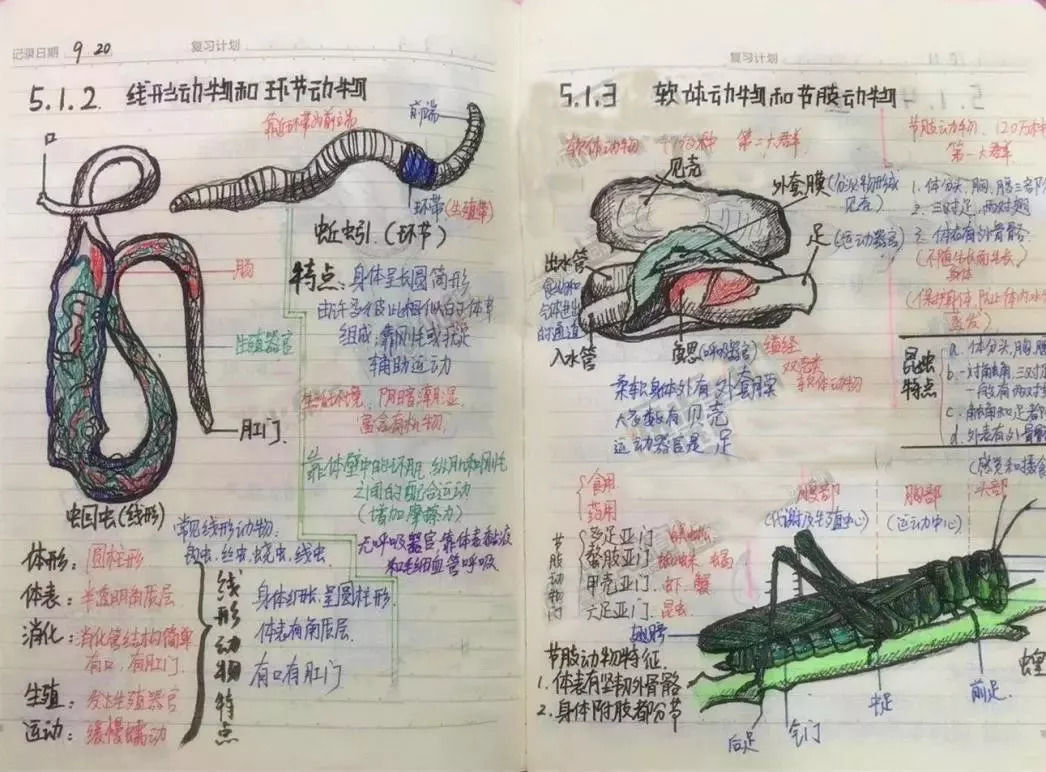 记录日期 9.20
复习计划
5.1.2. 线形动物和环节动物
口
靠近环带为前端
前端
环带(生殖带)
蚯蚓.(环节)
特点:身体呈长圆筒形
由许多彼此相似的体节
组成;靠刚毛或疣足
辅助运动
生活环境,阴暗潮湿,
富含有机物,
靠体壁中的环肌,纵肌和刚毛
之间的配合运动
(增加摩擦力)
无呼吸器官,靠体表黏液
和毛细血管呼吸
肠
生殖器官
肛门.
蛔虫(线形)
常见线形动物:
钩虫.丝虫.蛲虫.线虫
体形:圆柱形
体表:半透明角质层.
消化:消化管结构简单
有口,有肛门.
生殖:发达生殖器官
运动:缓慢蠕动
线形动物特点
身体细长,呈圆柱形.
体表有角质层.
有口有肛门
复习计划
5.1.3 软体动物和节肢动物
软体动物 第二大类群
节肢动物.120万种
第一大类群
贝壳
外套膜(分泌物形成
贝壳)
足(运动器官)
出水管
入水管
鳃(呼吸器官)
缢蛏
双壳类
软体动物
柔软身体外有外套膜
大多数有贝壳
运动器官是足
1.体分头,胸,腹三部
2.三对足,两对翅
3.体表有外骨骼
(不随生长而生长)
身体
(保护身体,防止体内水分
蒸发)
昆虫特点
a.体分头,胸,腹
b.一对触角,三对足
一般有两对
c.触角和足
d.外表有外骨骼
食用
药用
节肢动物门
多足亚门:蜈蚣
螯肢亚门:蜘蛛
甲壳亚门.虾.蟹
六足亚门.昆虫
腹部
(代谢及生殖中心)
胸部
(运动中心)
头部
(感觉和摄食
翅膀
节肢动物特征.
1.体表有坚韧外骨骼
2.身体附肢都分节
后足
气门
中足
前足.
蝗